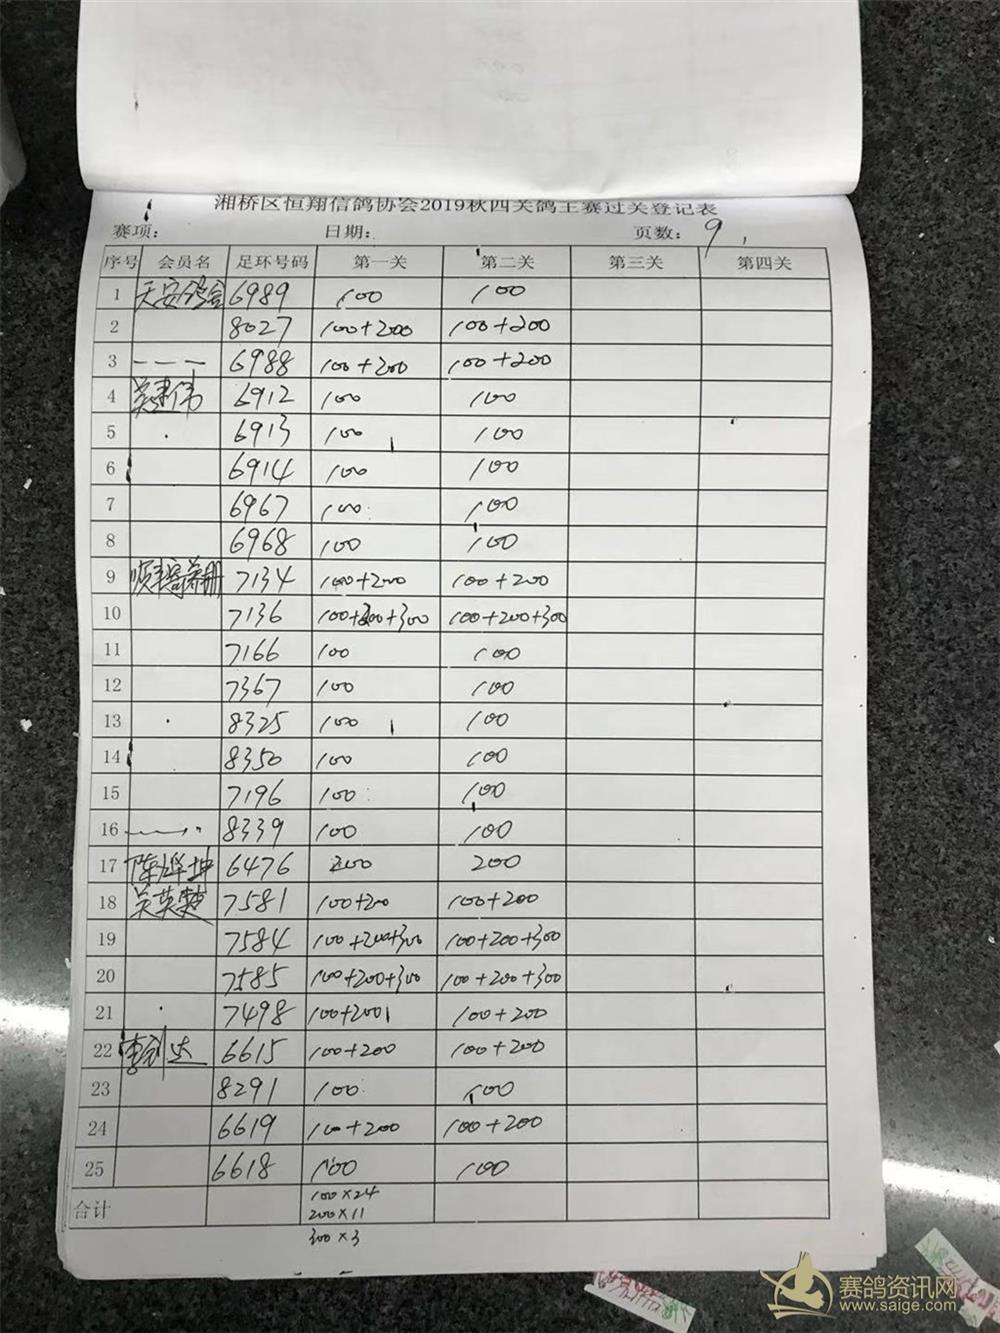 湘桥区恒翔信鸽协会2019秋四关鸽王赛过关登记表
赛项: 日期: 页数: 9
序号 会员名 足环号码 第一关 第二关 第三关 第四关
1 天安鸽舍 6989 100 100
2 8027 100+200 100+200
3 6988 100+200 100+200
4 吴建伟 6912 100 100
5 6913 100 100
6 6914 100 100
7 6967 100 100
8 6968 100 100
9 顺丰寄养棚 7134 100+200 100+200
10 7136 100+200+300 100+200+300
11 7166 100 100
12 7367 100 100
13 8325 100 100
14 8350 100 100
15 7196 100 100
16 8339 100 100
17 陈坤 6476 200 200
18 吴英 7581 100+200 100+200
19 7584 100+200+300 100+200+300
20 7585 100+200+300 100+200+300
21 7498 100+200 100+200
22 李剑达 6615 100+200 100+200
23 8291 100 100
24 6619 100+200 100+200
25 6618 100 100
合计 100×24
200×11
300×3
赛鸽资讯网
www.saige.com